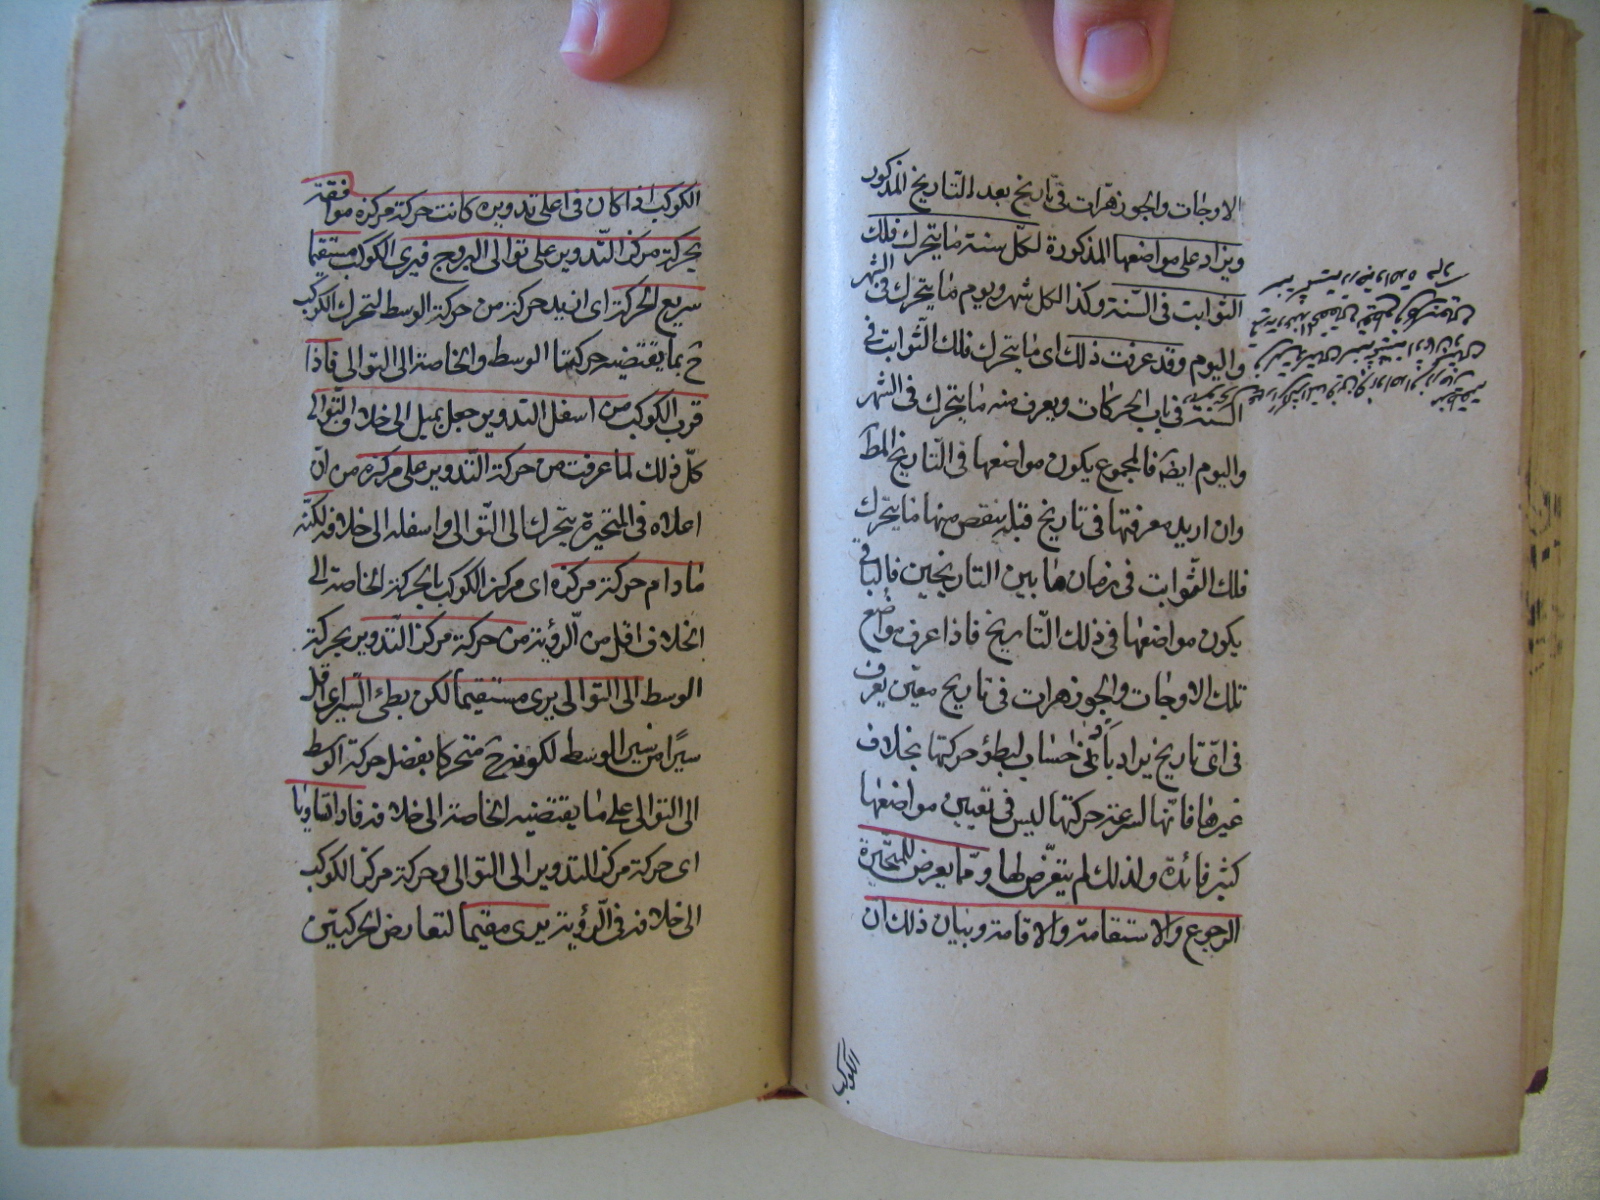 الاوجات والجوزهرات فى تاريخ بعد التاريخ المذكور
ويزاد على مواضعها المذكورة لكل سنة ما يتحرك فلك
الثوابت فى السنة وكذا لكل شهر ويوم ما يتحرك فى الشهر
واليوم وقد عرفت ذلك اى ما يتحرك فلك الثوابت فى
السنة فى باب الحركات ويعرف منه ما يتحرك فى الشهر
واليوم ايضا فالمجموع يكون مواضعها فى التاريخ المط
وان اريد معرفتها فى تاريخ قبله ينقص منها ما يتحرك
فلك الثوابت فى زمان ما بين التاريخين فالباقى
يكون مواضعها فى ذلك التاريخ فاذا عرف مواضع
تلك الاوجات والجوزهرات فى تاريخ معين يعرف
فى اى تاريخ يراد بادنى حساب لبطؤ حركتها بخلاف
غيرها فانها لسرعة حركتها ليس فى تعيين مواضعها
كثير فائدة ولذلك لم يتعرض لها ومما يعرض للمتحيرة
الرجوع والاستقامة والاقامة وبيان ذلك ان
الكوكب
الكوكب اذا كان فى اعلى تدويره كانت حركة مركزه موافقة
لحركة مركز التدوير على توالى البروج فيرى الكوكب مستقيما
سريع الحركة اى ازيد حركة من حركة الوسط لتحرك الكوكب
ح بما يقتضيه حركتا الوسط والخاصة الى التوالى فاذا
قرب الكوكب من اسفل التدوير جعل يميل الى خلاف التوالى
كل ذلك لما عرفت من حركة التدوير على مركزه من ان
اعلاه فى المتحيرة يتحرك الى التوالى واسفله الى خلافه لكنه
ما دام حركة مركزه اى مركز الكوكب بالحركة الخاصة الى
الخلاف اقل من الرؤية من حركة مركز التدوير بحركة
الوسط الى التوالى يرى مستقيما لكن بطئ السير اى اقل
سيرا من سير الوسط لكونه ح متحركا بفضل حركة الوسط
الى التوالى على ما يقتضيه الخاصة الى خلافه فاذا تقاويا
اى حركة مركز التدوير الى التوالى وحركة مركز الكوكب
الى خلافه فى الرؤية يرى مقيما لتعارض الحركتين